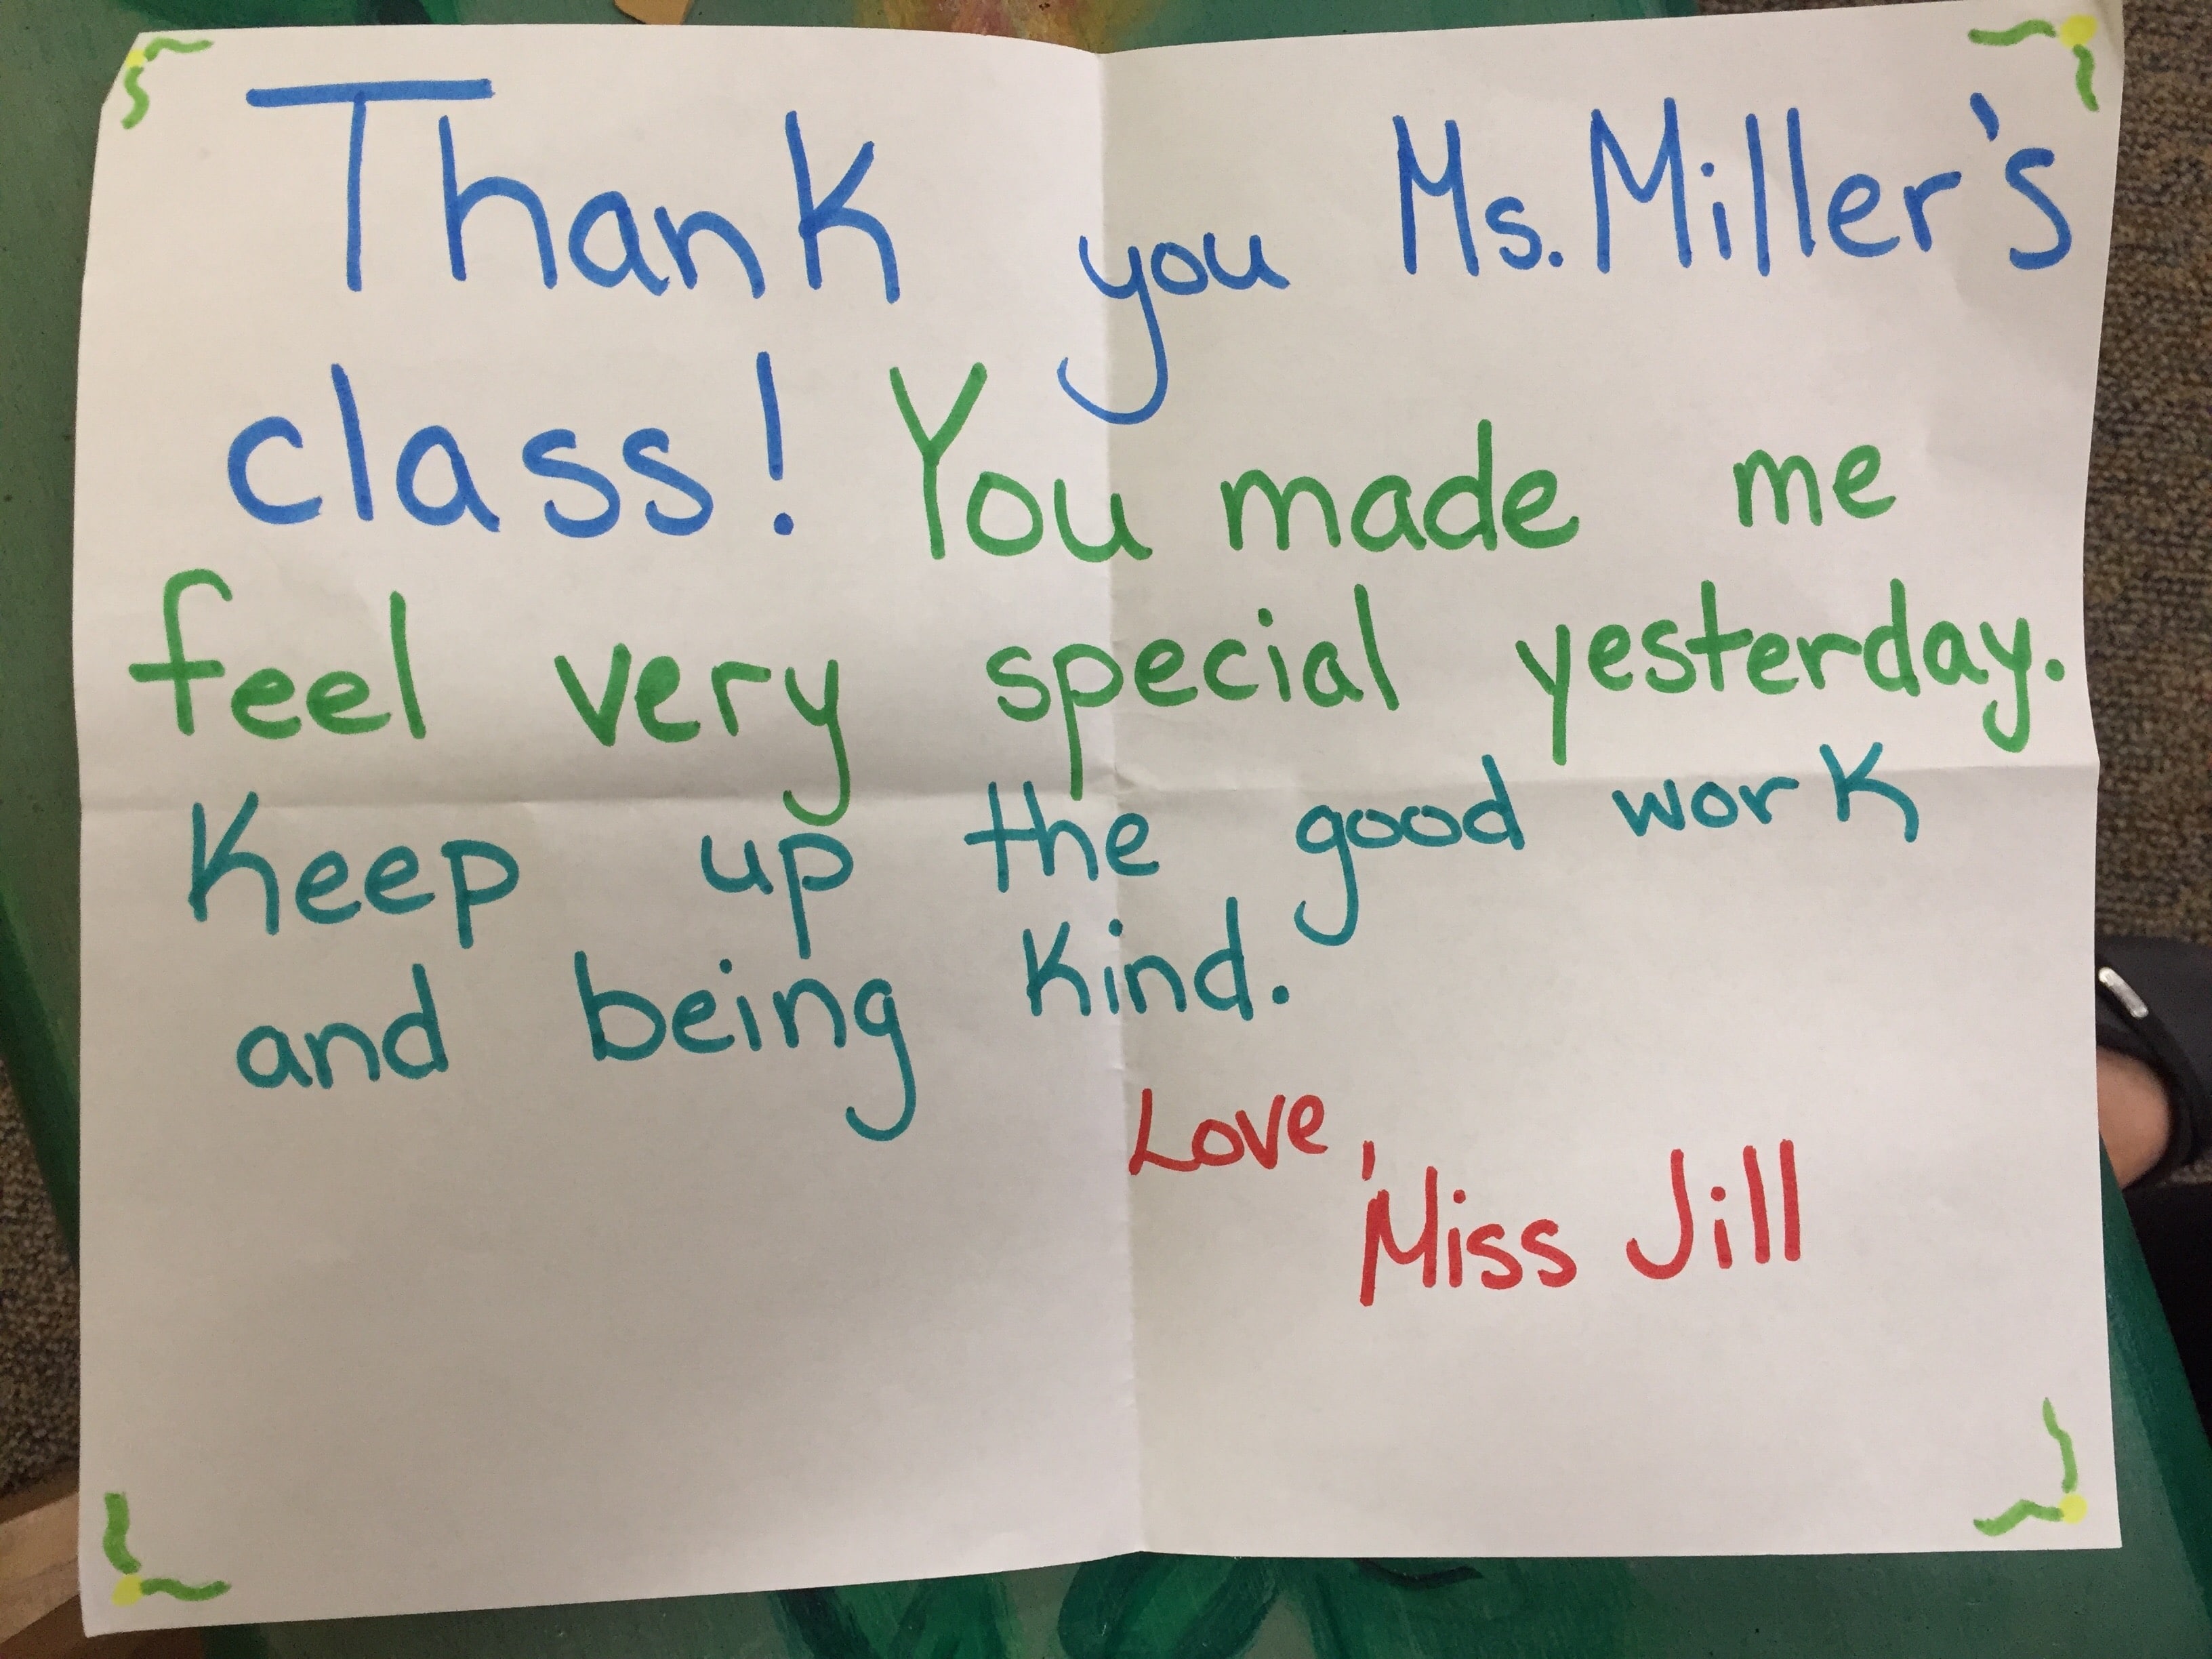 Thank you Ms. Miller's
class! You made me
feel very special yesterday.
Keep up the good work
and being kind.
Love,
Miss Jill